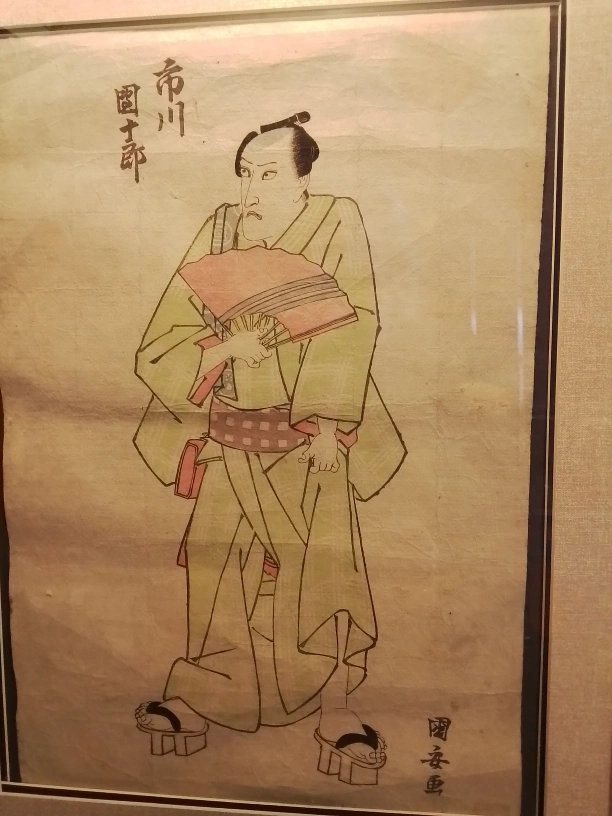 市川
團十郎
國安画